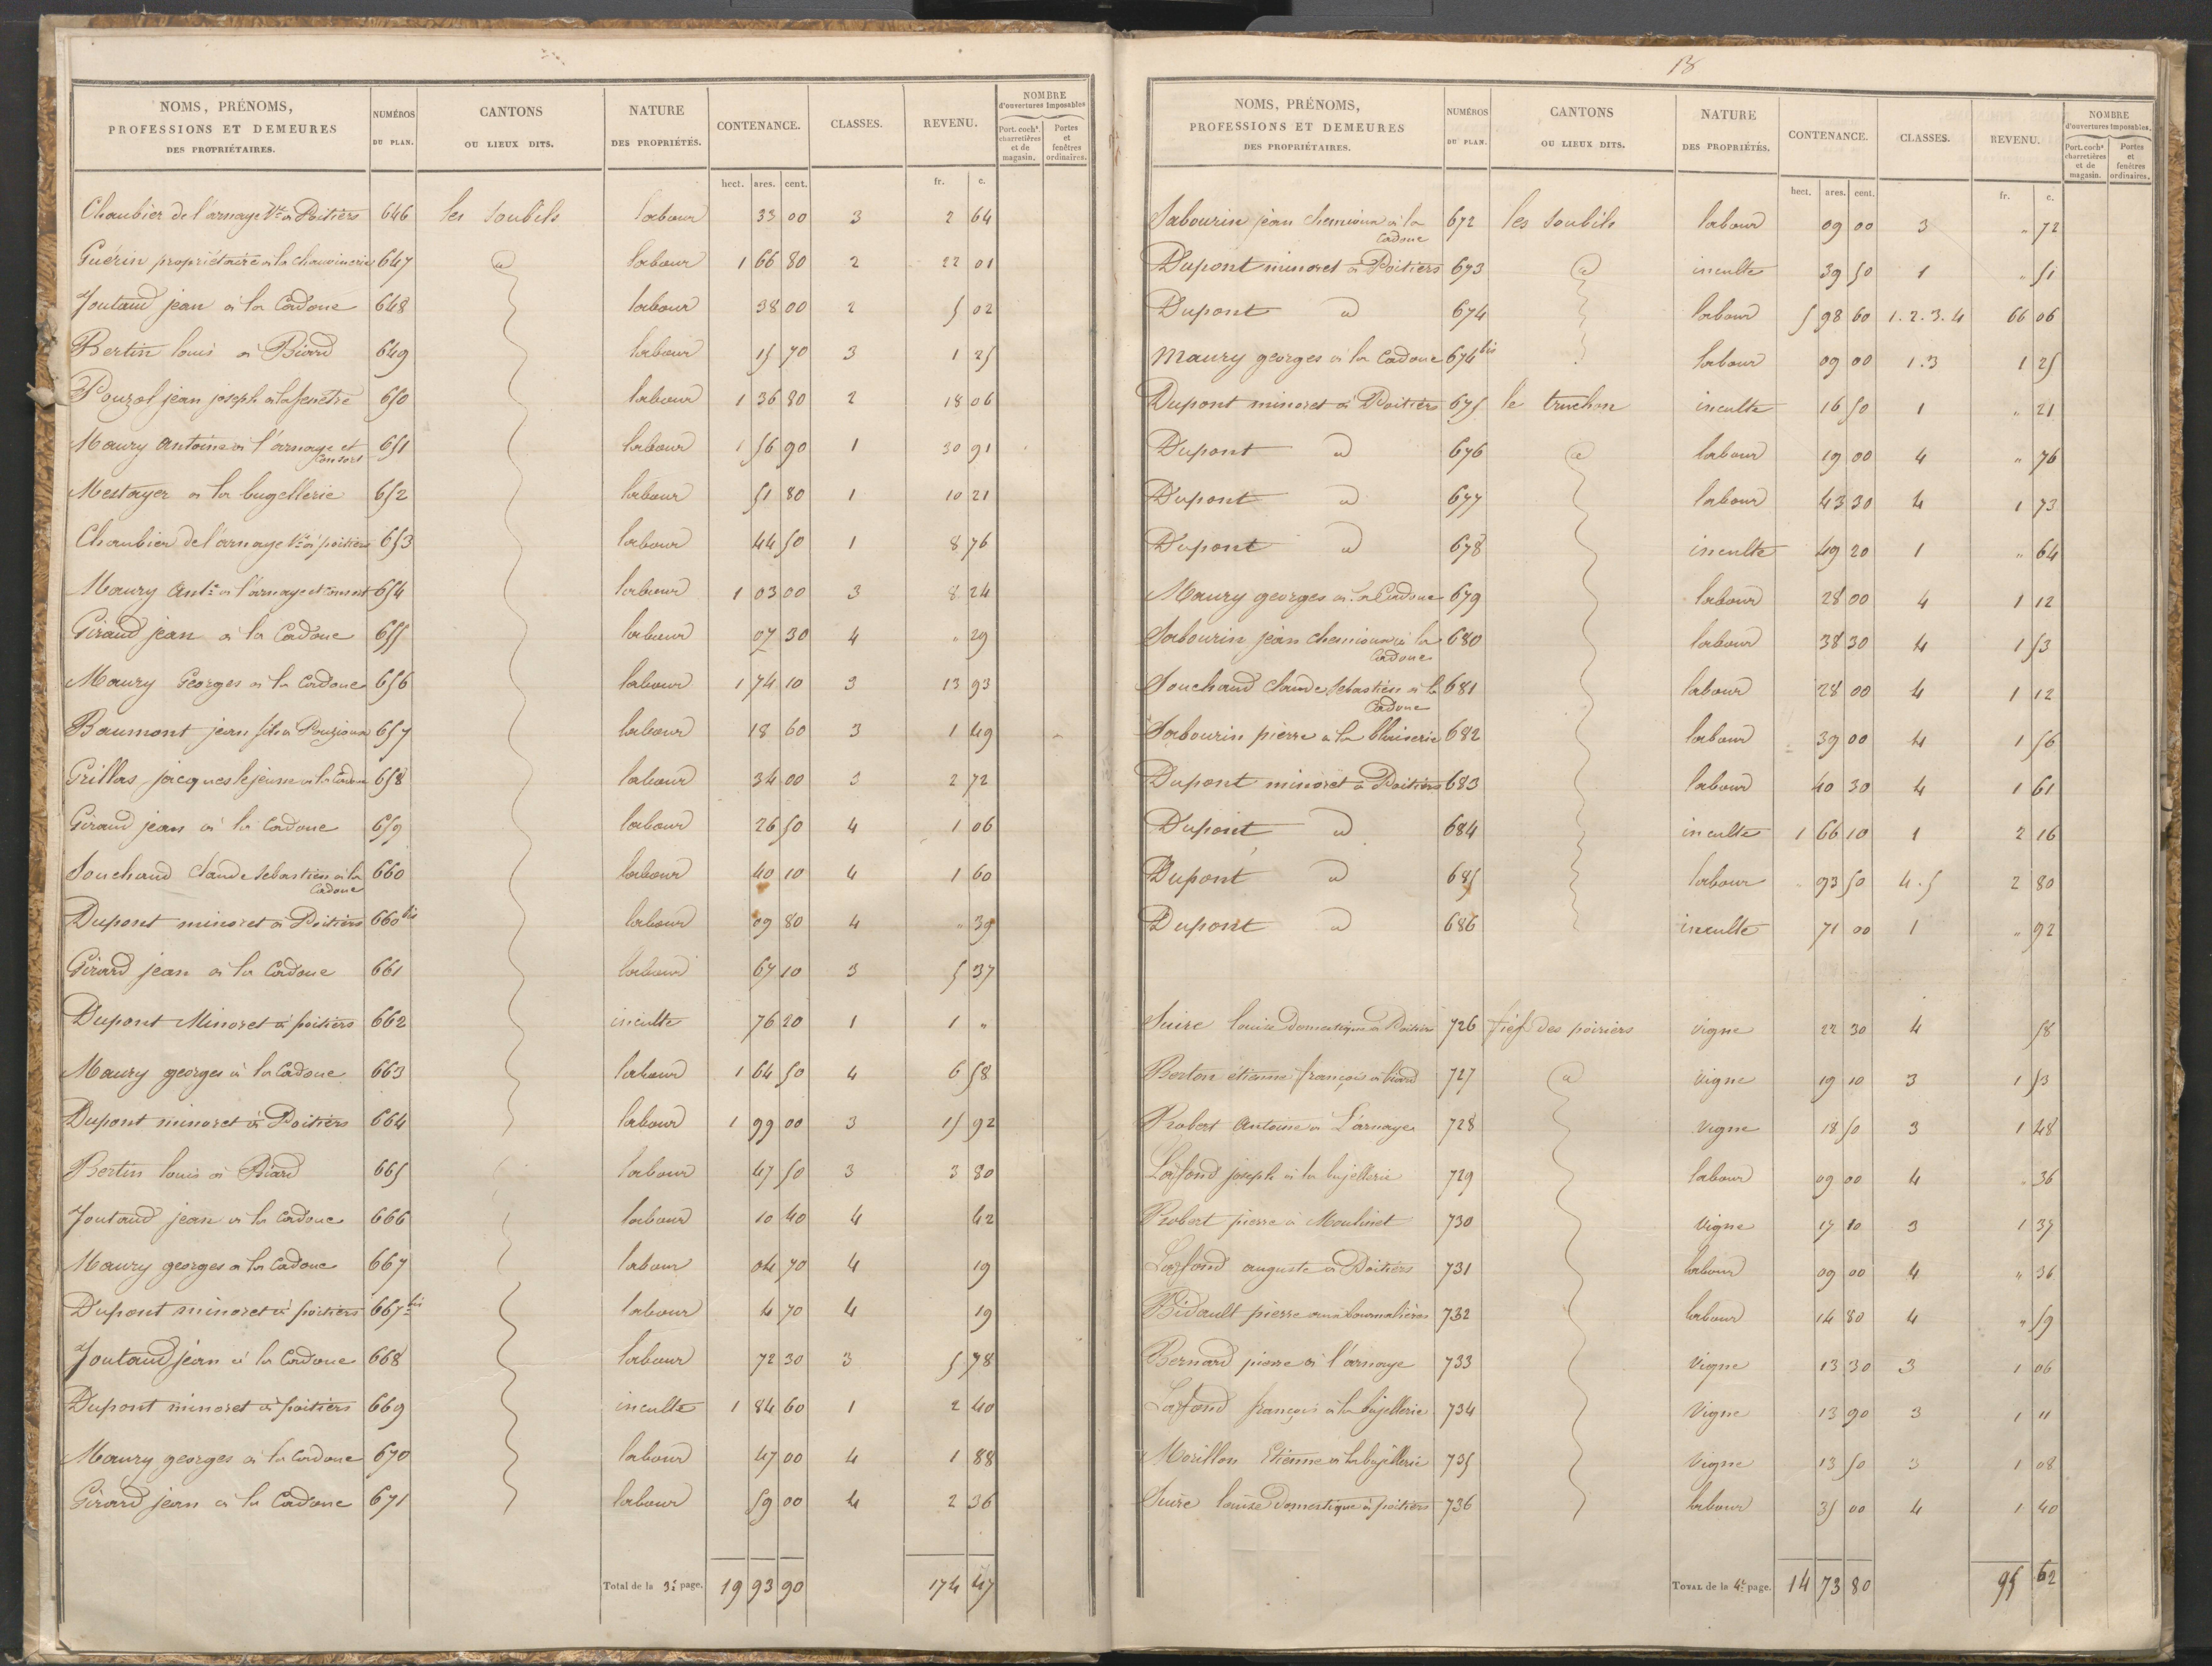 NOMS, PRÉNOMS,
PROFESSIONS ET DEMEURES
DES PROPRIÉTAIRES.
NUMÉROS
DU PLAN.
CANTONS
OU LIEUX DITS.
NATURE
DES PROPRIÉTÉS.
CONTENANCE.
CLASSES.
REVENU.
NOMBRE
d'ouvertures imposables
Port. coch.s
charretières
et de
magasin.
Portes
et
fenêtres
ordinaires.
hect. ares. cent. fr. c.
Chaubier de l'arnaye Ve à Poitiers 646 les Soubils labour 33 00 3 2 64
Guérin propriétaire à la chauvinerie 647 id labour 1 66 80 2 22 01
Joutaud jean à la Cadoue 648 labour 38 00 2 5 02
Bertin louis à Biard 649 labour 15 70 3 1 25
Pouzol jean joseph à la fenêtre 650 labour 1 36 80 2 18 06
Maury Antoine à l'arnaye et Consort 651 labour 1 56 90 1 30 91
Mestayer à la bugellerie 652 labour 51 80 1 10 21
Chaubier de l'arnaye Ve à poitiers 653 labour 44 50 1 8 76
Maury Ant.e à l'arnaye et consort 654 labour 1 03 00 3 8 24
Giraud jean à la Cadoue 655 labour 07 30 4 " 29
Maury Georges à la Cadoue 656 labour 1 74 10 3 13 93
Baumont jean fils à Pouzioux 657 labour 18 60 3 1 49
Grillas jacques le jeune à la Cadoue 658 labour 34 00 3 2 72
Giraud jean à la Cadoue 659 labour 26 50 4 1 06
Souchaud Claude Sebastien à la Cadoue 660 labour 40 10 4 1 60
Dupont minoret à Poitiers 660 bis labour 09 80 4 " 39
Girard jean à la Cadoue 661 labour 67 10 3 5 37
Dupont Minoret à poitiers 662 inculte 76 20 1 1 "
Maury georges à la Cadoue 663 labour 1 64 50 4 6 58
Dupont minoret à Poitiers 664 labour 1 99 00 3 15 92
Bertin louis à Biard 665 labour 47 50 3 3 80
Joutaud jean à la Cadoue 666 labour 10 40 4 42
Maury georges à la Cadoue 667 labour 04 70 4 19
Dupont minoret à poitiers 667 bis labour 4 70 4 19
Joutaud jean à la Cadoue 668 labour 72 30 3 5 78
Dupont minoret à poitiers 669 inculte 1 84 60 1 2 40
Maury georges à la Cadoue 670 labour 47 00 4 1 88
Girard jean à la Cadoue 671 labour 59 00 4 2 36
Total de la 3e page. 19 93 90 174 47
18
NOMS, PRÉNOMS,
PROFESSIONS ET DEMEURES
DES PROPRIÉTAIRES.
NUMÉROS
DU PLAN.
CANTONS
OU LIEUX DITS.
NATURE
DES PROPRIÉTÉS.
CONTENANCE.
CLASSES.
REVENU.
NOMBRE
d'ouvertures imposables.
Port. coch.s
charretières
et de
magasin.
Portes
et
fenêtres
ordinaires.
hect. ares. cent. fr. c.
Sabourin jean chemioux à la Cadoue 672 les Soubils labour 09 00 3 " 72
Dupont minoret à Poitiers 673 id inculte 39 50 1 " 51
Dupont id 674 labour 5 98 60 1.2.3.4 66 06
Maury georges à la Cadoue 674 bis labour 09 00 1.3 1 25
Dupont minoret à Poitiers 675 le truchon inculte 16 50 1 " 21
Dupont id 676 id labour 19 00 4 " 76
Dupont id 677 labour 43 30 4 1 73
Dupont id 678 inculte 49 20 1 " 64
Maury georges à la Cadoue 679 labour 28 00 4 1 12
Sabourin jean chemioux à la Cadoue 680 labour 38 30 4 1 53
Souchaud Claude Sebastien à la Cadoue 681 labour 28 00 4 1 12
Sabourin pierre à la 682 labour 39 00 4 1 56
Dupont minoret à Poitiers 683 labour 40 30 4 1 61
Dupont id 684 inculte 1 66 10 1 2 16
Dupont id 685 labour " 93 50 4.5 2 80
Dupont id 686 inculte 71 00 1 " 92
Suire louise Domestique à Poitiers 726 fief des poiriers vigne 22 30 4 58
Berton étienne françois à biard 727 id vigne 19 10 3 1 53
Robert Antoine à L'arnaye 728 vigne 18 50 3 1 48
Lafond joseph à la bujellerie 729 labour 09 00 4 " 36
Robert pierre à Moulinet 730 vigne 17 10 3 1 37
Lafond auguste à Poitiers 731 labour 09 00 4 " 36
Bidault pierre 732 labour 14 80 4 " 59
Bernard pierre à l'arnaye 733 vigne 13 30 3 1 06
Lafond françois à la bujellerie 734 vigne 13 90 3 1 11
Morillon Etienne à la bujellerie 735 vigne 13 50 3 1 08
Suire louise Domestique à poitiers 736 labour 35 00 4 1 40
Total de la 4e page. 14 73 80 95 62